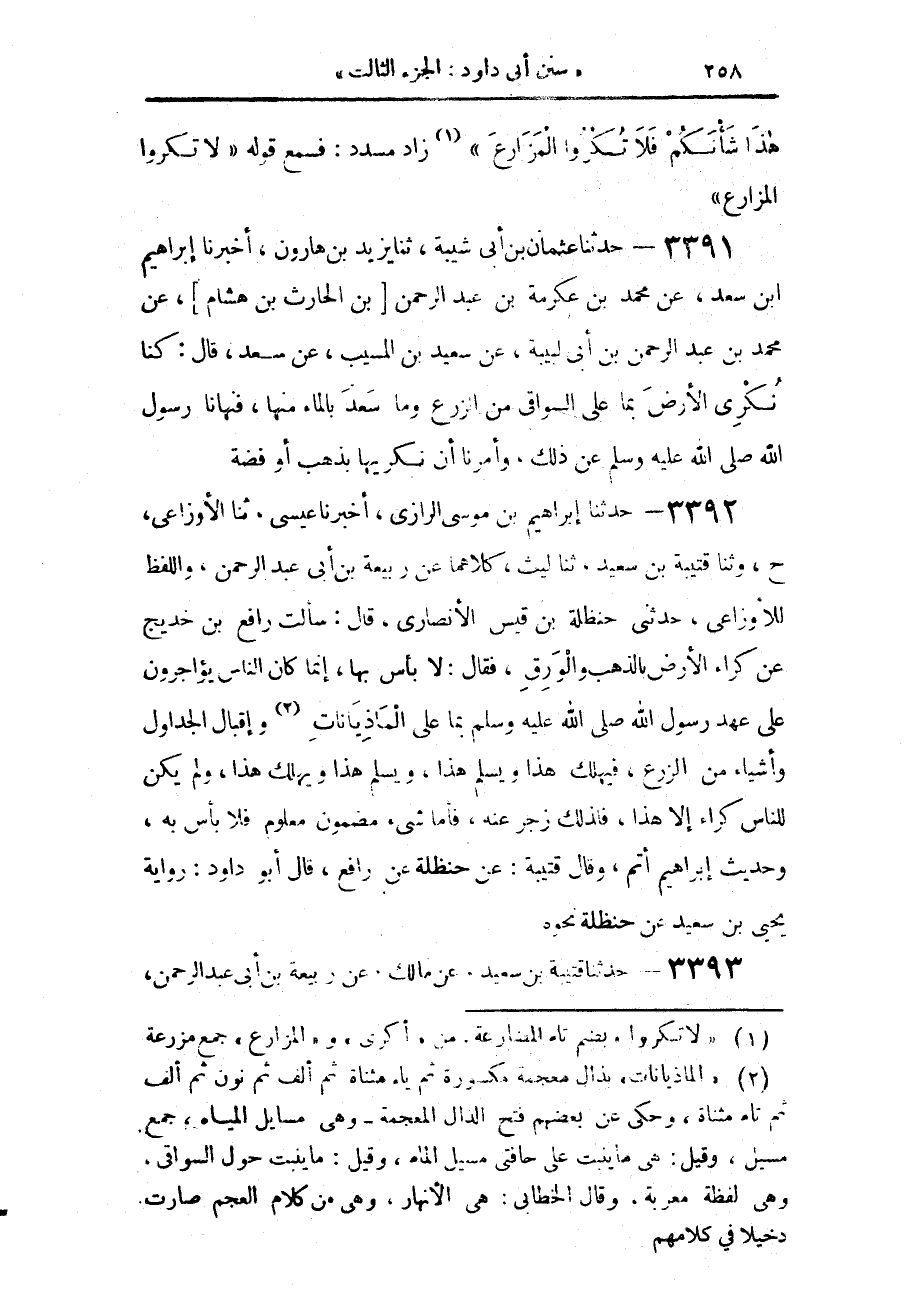 ٢٥٨ « سنن أبى داود : الجزء الثالث »
هٰذَا شَأْنَكُمْ فَلَا تُكْرُوا الْمَزَارِعَ » (١) زاد مسدد : فسمع قوله « لا تكروا
المزارع »
٣٣٩١ — حدثنا عثمان بن أبى شيبة ، ثنا يزيد بن هارون ، أخبرنا إبراهيم
ابن سعد ، عن محمد بن عكرمة بن عبد الرحمن [ بن الحارث بن هشام ] ، عن
محمد بن عبد الرحمن بن أبى لبيبة ، عن سعيد بن المسيب ، عن سعد ، قال : كنا
نُكْرِى الأرضَ بما على السواقى من الزرع وما سَعَدَ بالماء منها ، فنهانا رسول
الله صلى الله عليه وسلم عن ذلك . وأمرنا أن نكريها بذهب أو فضة
٣٣٩٢ — حدثنا إبراهيم بن موسى الرازى ، أخبرنا عيسى . ثنا الأوزاعى ،
ح ، وثنا قتيبة بن سعيد . ثنا ليث ، كلاهما عن ربيعة بن أبى عبد الرحمن ، واللفظ
للأوزاعى ، حدثنى حنظلة بن قيس الأنصارى . قال : سألت رافع بن خديج
عن كراء الأرض بالذهب والْوَرِقِ ، فقال : لا بأس بها ، إنما كان الناس يؤاجرون
على عهد رسول الله صلى الله عليه وسلم بما على الْمَاذِيَانَاتِ (٢) و إقبال الجداول
وأشياء من الزرع ، فيهلك هذا و يسلم هذا ، ويسلم هذا و يهلك هذا ، ولم يكن
للناس كراء إلا هذا ، فلذلك زجر عنه ، فأما شىء مضمون معلوم فلا بأس به ،
وحديث إبراهيم أتم ، وقال قتيبة : عن حنظلة عن رافع ، قال أبو داود : رواية
يحيى بن سعيد عن حنظلة نحوه
٣٣٩٣ — حدثنا قتيبة بن سعيد . عن مالك . عن ربيعة بن أبى عبد الرحمن ،
(١) « لا تكروا » بضم تاء المضارعة . من « أكرى » و « المزارع » جمع مزرعة
(٢) « الماذيانات » بذال معجمة مكسورة ثم ياء مثناة ثم ألف ثم نون ثم ألف
ثم تاء مثناة ، وحكى عن بعضهم فتح الذال المعجمة ـ وهى مسايل المياه ، جمع
مسيل ، وقيل : هى ماينبت على حافتى مسيل الماء ، وقيل : ماينبت حول السواقى .
وهى لفظة معربة . وقال الخطابى : هى الأنهار ، وهى من كلام العجم صارت
دخيلا في كلامهم